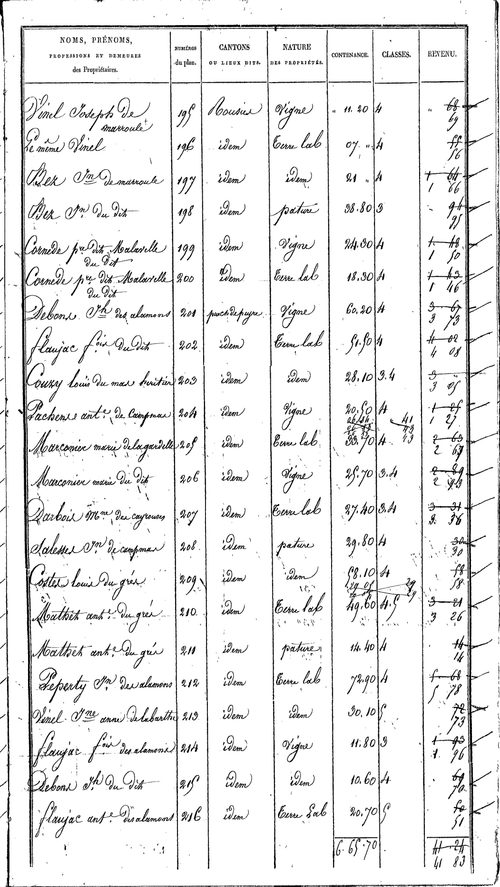 NOMS, PRÉNOMS, PROFESSIONS ET DEMEURES des Propriétaires. NUMÉROS du plan. CANTONS OU LIEUX DITS. NATURE DES PROPRIÉTÉS. CONTENANCE. CLASSES. REVENU.
Vinel Joseph de marroule 195 Rousies Vigne " 11.20 4 " 68 69
Le même Vinel 196 idem Terre lab 07 " 4 55 56
Bez Jn de marroule 197 idem idem 21 " 4 1 64 1 66
Bez Jn du dit 198 idem pature 38.80 3 94 95
Cornede pre dit Malavelle du dit 199 idem Vigne 24.30 4 1 48 1 50
Cornede pre dit Malavelle du dit 200 idem Terre lab 18.30 4 1 43 1 46
Debons Jh des alamons 201 puech de peyre Vigne 60.20 4 3 67 3 73
flaujac fois du dit 202 idem Terre lab 51.50 4 4 02 4 08
Couzy louis du mas héritier 203 idem idem 28.10 3.4 3 " 3 05
Pachens ante de Campmas 204 idem Vigne 20.50 4 1 25 1 27
Marconier marie de lagardelle 205 idem Terre lab 33.70 4 2 63 2 69
Marconier marie du dit 206 idem Vigne 25.70 3.4 2 89 2 93
Barbois Mne des cayroues 207 idem Terre lab 27.40 3.4 3 31 3 36
Salesses Jn de campmas 208 idem pature 29.80 4 30 30
Costes louis du grès 209 idem idem 58.10 4 58 58
Mathet ante du grès 210 idem Terre lab 49.60 4.5 3 21 3 26
Mathet ante du grès 211 idem pature 14.40 4 14 14
Peperty Jn des alamons 212 idem Terre lab 72.90 4 5 68 5 78
Vinel Jne anne de labarthe 213 idem idem 30.10 5 72 73
flaujac fois des alamons 214 idem Vigne 11.80 3 1 93 1 96
Debons Jh du dit 215 idem idem 10.60 4 69 70
flaujac ante des alamons 216 idem Terre lab 20.70 5 50 51
6.65.70 41.24
41 83